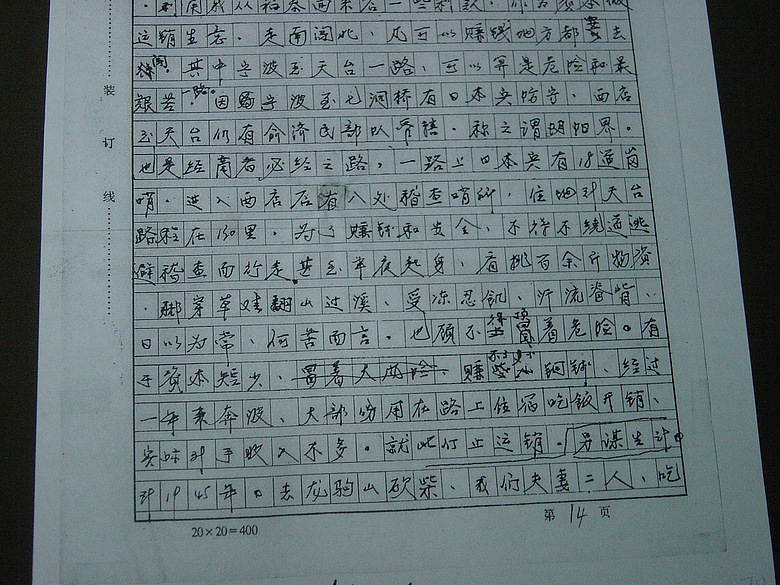 运销生意。走南闯北，凡可以赚钱地方都要去
闯。其中宁波至天台一路，可以算是危险和最
艰苦一路。因为宁波至七洞桥有日本兵防守。西店
至天台仍有俞济民部队管辖。称之谓阴阳界。
也是经商者必经之路，一路上日本兵有18道岗
哨。进入西店后有入处稽查哨所。住地到天台
路程在130里。为了赚钱和安全、不得不绕道逃
避稽查而行走甚至半夜起身、肩挑百余斤物资
、脚穿草鞋翻山过溪、受冻忍饥、汗流脊背、
日以为常、何苦而言。也顾不得冒着危险。有
于资本短少、冒着大风险、赚些小铜钿、经过
一年来奔波、大部份用在路上住宿吃饭开销、
实际到手收入不多。就此停止运销。另谋生计。
到1945年。去龙驹山砍柴、我们夫妻二人、吃
装
订
线
20×20=400
第 14 页